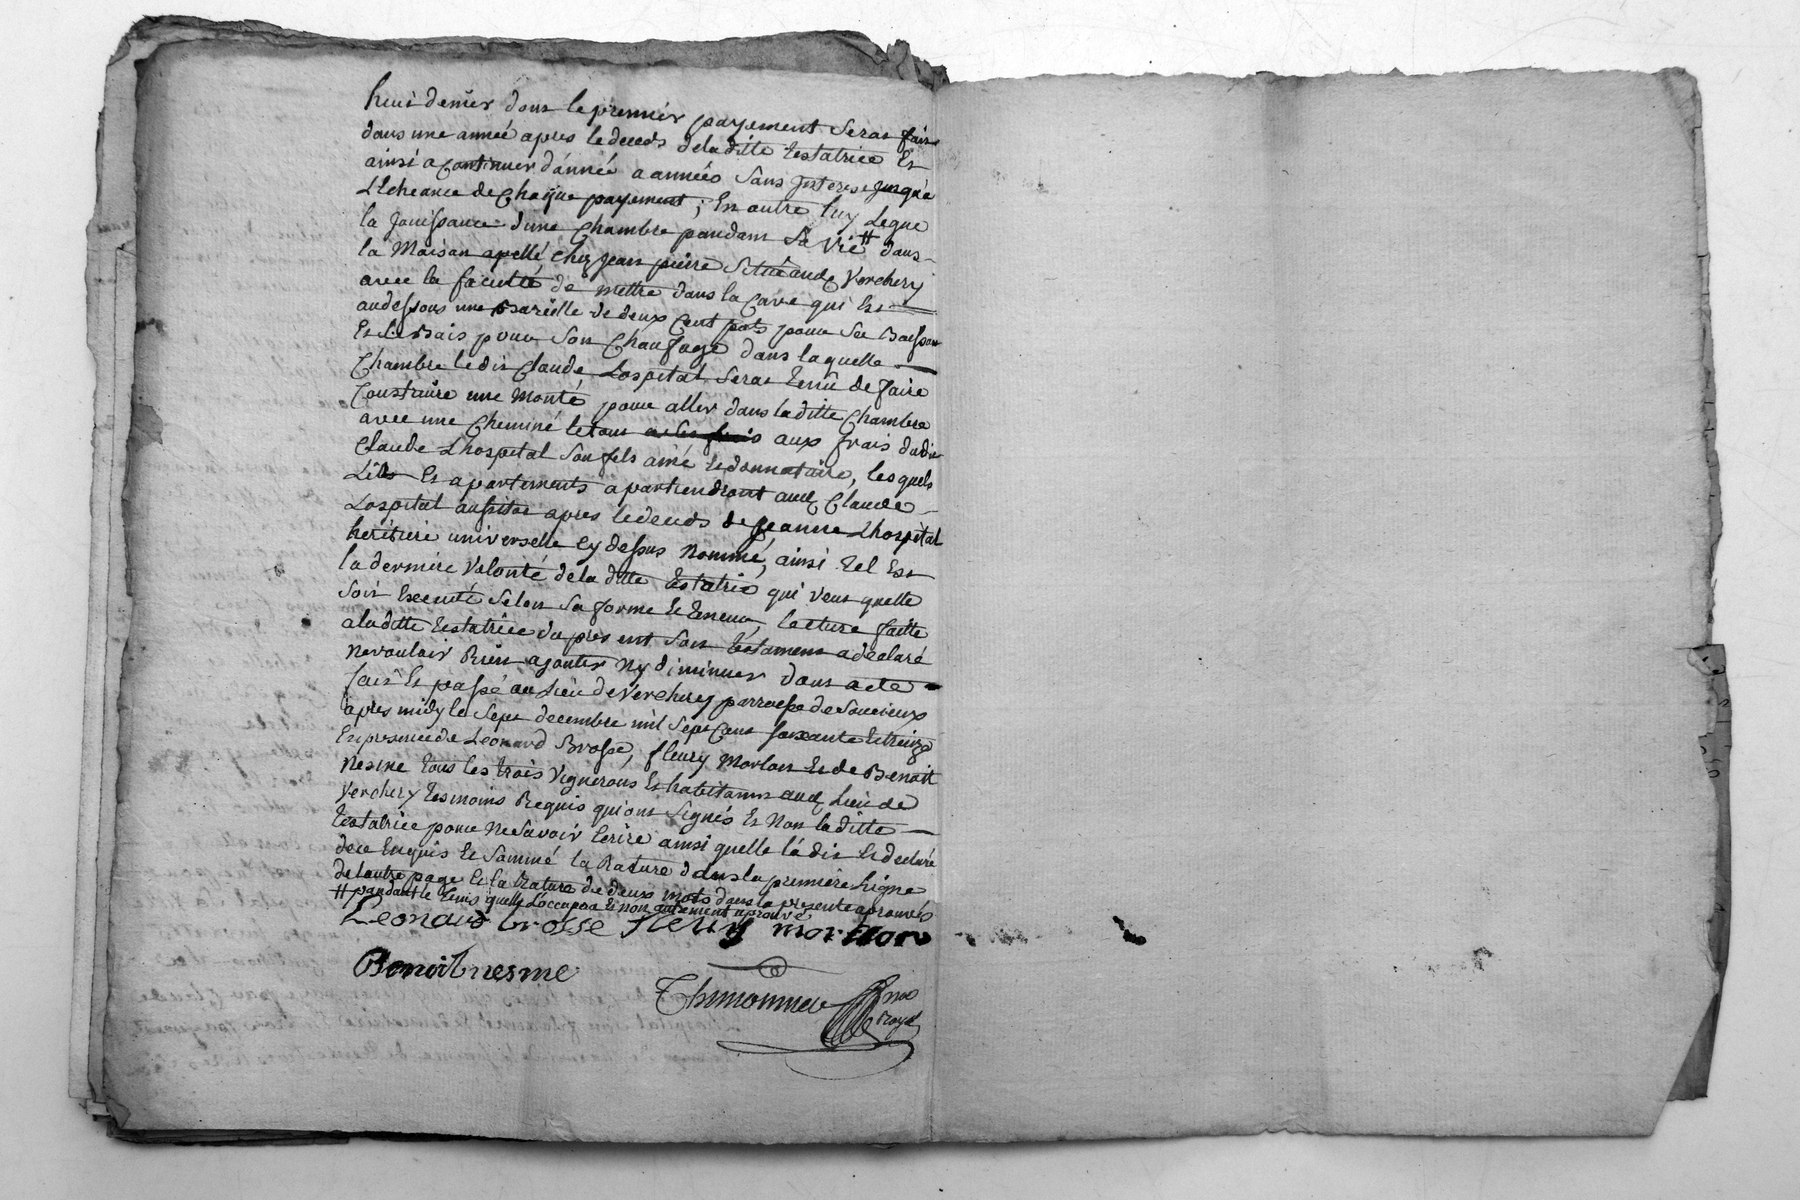 huit denier dont le premier payement seras fait
dans une année apres le deceds de la ditte testatrice Et
ainsi a Continuer d'année a années sans Interest jusqu'a
L'Echeance de Chaque payement; En outre luy Legue
la Jouissance d'une Chambre pandant sa vie # dans
la Maison apellé chez Jean pierre situé aud Verchery
avec la faculté de mettre dans la Cave qui Est
audessous une Bareille de deux Cent pots pour sa Boisson
Et le Bois pour son Chaufage dans laquelle
Chambre ledit Claude Lospital seras tenû de faire
Construire une Monté pour aller dans la ditte Chambre
avec une Cheminé le tout aux frais dudit
Claude Lhospital son fils ainé Et donnataire, lesquels
Lits Et apartements apartiendront aud Claude
Lospital aussitot apres le deceds de Jeanne Lhospital
heritiere universelle Cy dessus Nommé, ainsi tel Est
la derniere Volonté de la ditte testatrice qui veut quelle
soit Executé selon sa forme Et teneur, lecture faitte
a laditte testatrice du present son testament a declaré
ne vouloir Rien ajouter Ny diminuer dont acte
fait Et passé au Lieu de Verchery parroisse de Soucieux
apres midy le sept decembre mil sept Cent soixante Et treize
En presence de Leonard Brosse, fleury Morlon Et de Benoit
Nesme tous les trois Vignerons Et habitants aud Lieu de
Verchery tesmoins Requis qui ont signés Et Non laditte
testatrice pour Ne savoir Ecrire ainsi quelle l'a dit Et declaré
de ce Enquis Et sommé la Rature dans la premiere Ligne
de l'autre page Et la Rature de deux mots dans la presente aprouvés
# pandant le tems quelle l'occupera Et non autrement aprouvé
Leonard brosse fleury morllon
Benoit nesme
Thimonnier
no.re
Royal